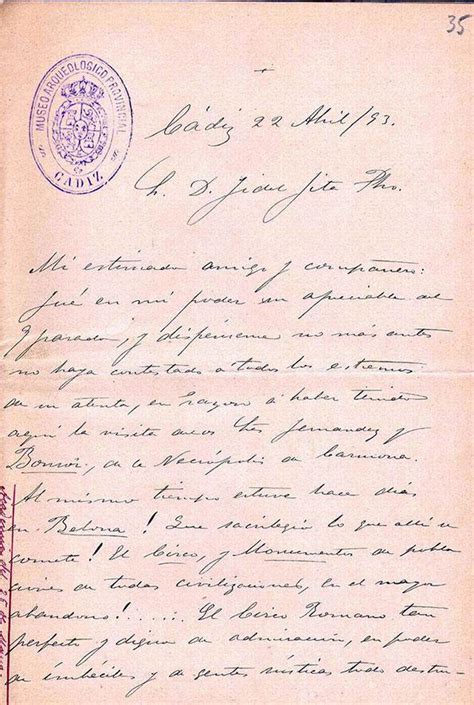 35
MUSEO ARQUEOLÓGICO PROVINCIAL
CÁDIZ
Cádiz 22 Abril/93.
D. Fidel Fita
Mi estimado amigo y compañero:
Fué en mi poder su apreciable del
9 pasado, y dispénseme no más antes
no haya contestado a todos los extremos
de su atenta, en razon á haber tenido
aquí la visita de los Sres Fernandez y
Bonsor, de la Necrópolis de Carmona.
Al mismo tiempo estuve hace dias
en Bolonia! Que sacrilegio lo que allí se
comete! El Circo, y Monumentos de pobla
ciones de todas civilizaciones, en el mayor
abandono!...... El Circo Romano tan
perfecto y digno de admiracion, en poder
de imbéciles y de gentes rústicas todo destru-